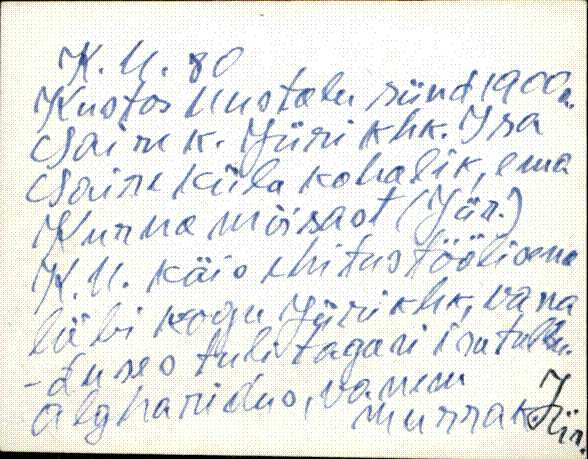 K. U. 80
Kustas Uustalu sünd. 1900 a.
Jüri khk. Isa
küla kohalik, ema
Kurna mõisast (Jür.)
K. U. käis ehitustöölisena
läbi kogu Jüri khk, vana
-duses tuli tagasi isatallu.
Algharidus, vanem
murrak. Jür.